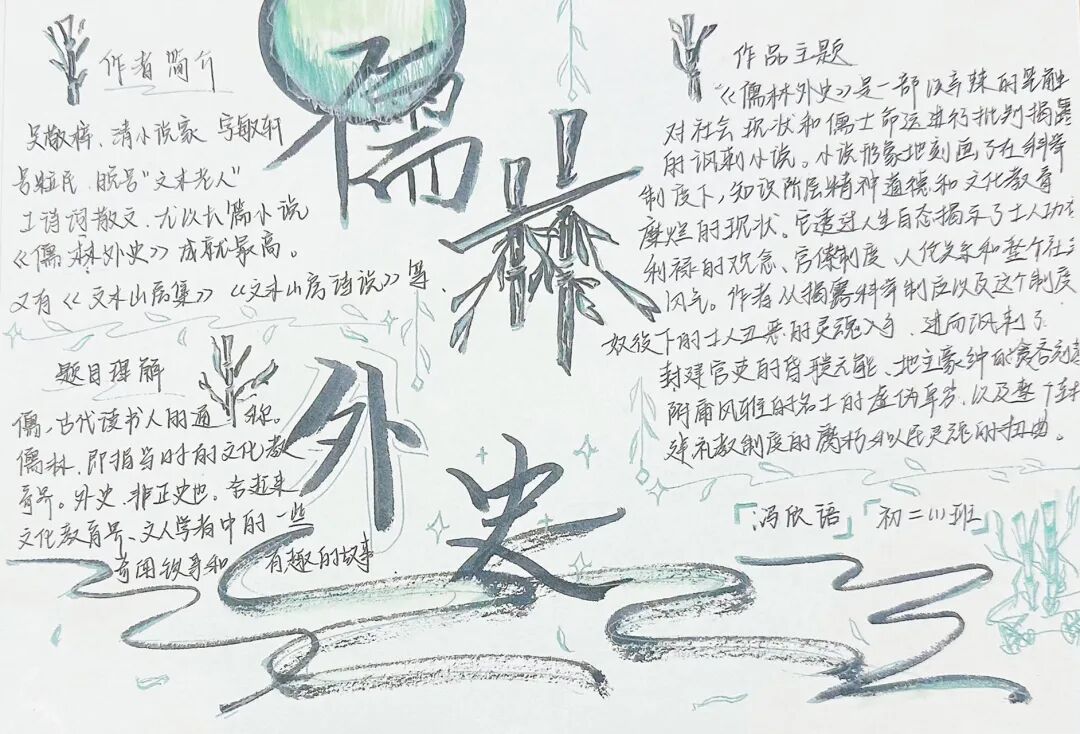 儒林外史
作者简介
吴敬梓、清小说家 字敏轩
号粒民，晚号“文木老人”
工诗词散文，尤以长篇小说
《儒林外史》成就最高。
又有《文木山房集》《文木山房诗说》等.
题目理解
儒，古代读书人的通称。
儒林，即指当时的文化教
育界。外史，非正史也。合起来
文化教育界、文人学者中的一些
有趣的故事
作品主题
《儒林外史》是一部以辛辣的笔触
对社会现状和儒士命运进行批判揭露
的讽刺小说。小说形象地刻画了在科举
制度下，知识阶层精神道德和文化教育
糜烂的现状。它透过人生百态揭示了士人功
利禄的观念、官僚制度、人伦关系和整个社
风气。作者从揭露科举制度以及这个制度
奴役下的士人丑恶的灵魂入手，进而讽刺了
封建官吏的昏聩无能、地主豪绅的贪吝刻
附庸风雅的名士的虚伪卑劣，以及整个封
建礼教制度的腐朽和人民灵魂的扭曲。
「冯欣语」「初二(1)班」